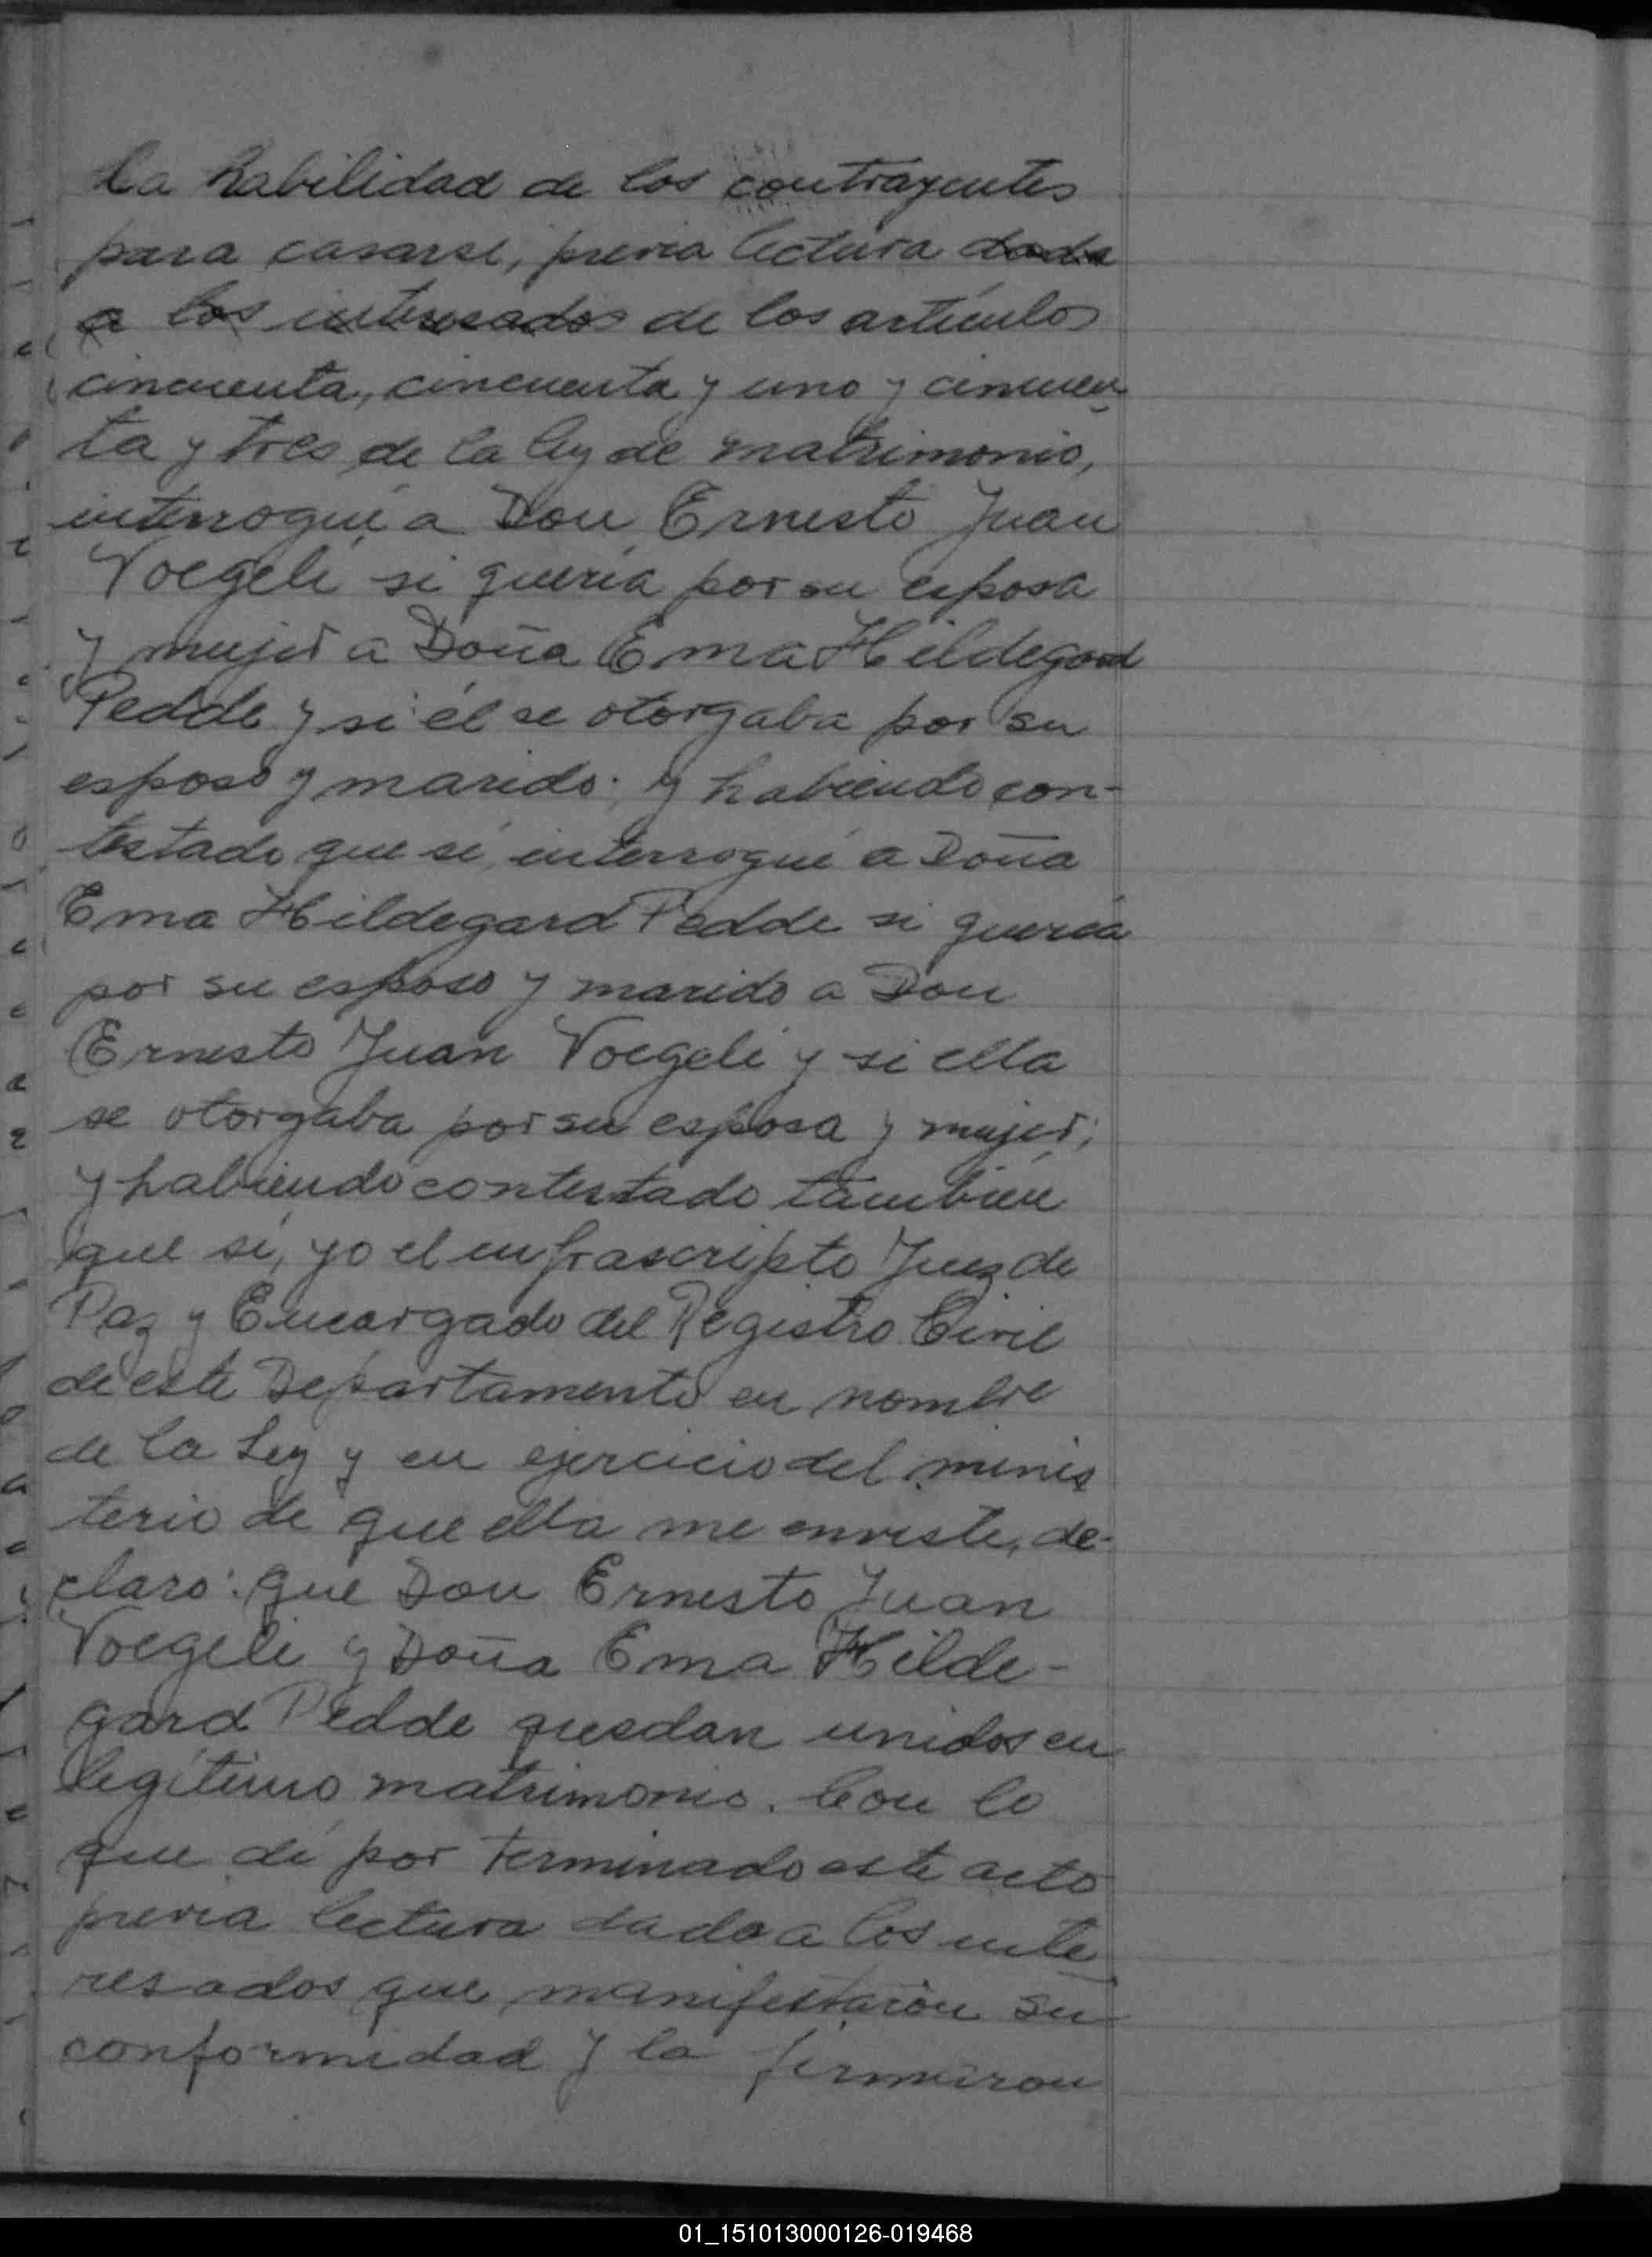 la habilidad de los contrayentes
para casarse, previa lectura dada
a los interesados de los artículos
cincuenta, cincuenta y uno y cincuen
ta y tres de la ley de matrimonio,
interrogué a Don Ernesto Juan
Voegeli si quería por su esposa
y mujer a Doña Ema Hildegard
Pedde y si él se otorgaba por su
esposo y marido; y habiendo con-
testado que sí, interrogué a Doña
Ema Hildegard Pedde si quería
por su esposo y marido a Don
Ernesto Juan Voegeli y si ella
se otorgaba por su esposa y mujer;
y habiendo contestado también
que sí, yo el infrascripto Juez de
Paz y Encargado del Registro Civil
de este Departamento en nombre
de la Ley y en ejercicio del minis
terio de que ella me enviste, de-
claro: que Don Ernesto Juan
Voegeli y Doña Ema Hilde-
gard Pedde quedan unidos en
legítimo matrimonio. Con lo
que dí por terminado este acto
previa lectura dada a los inte
resados que manifestaron su
conformidad y la firmaron
01_151013000126-019468